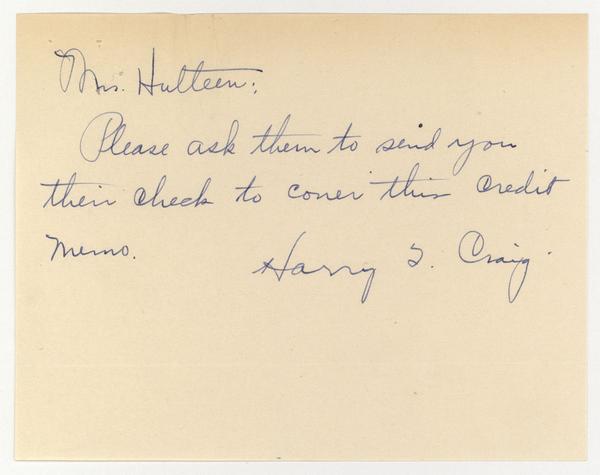 Mrs. Hulteen:
Please ask them to send you
their check to cover this credit
memo.
Harry S. Craig